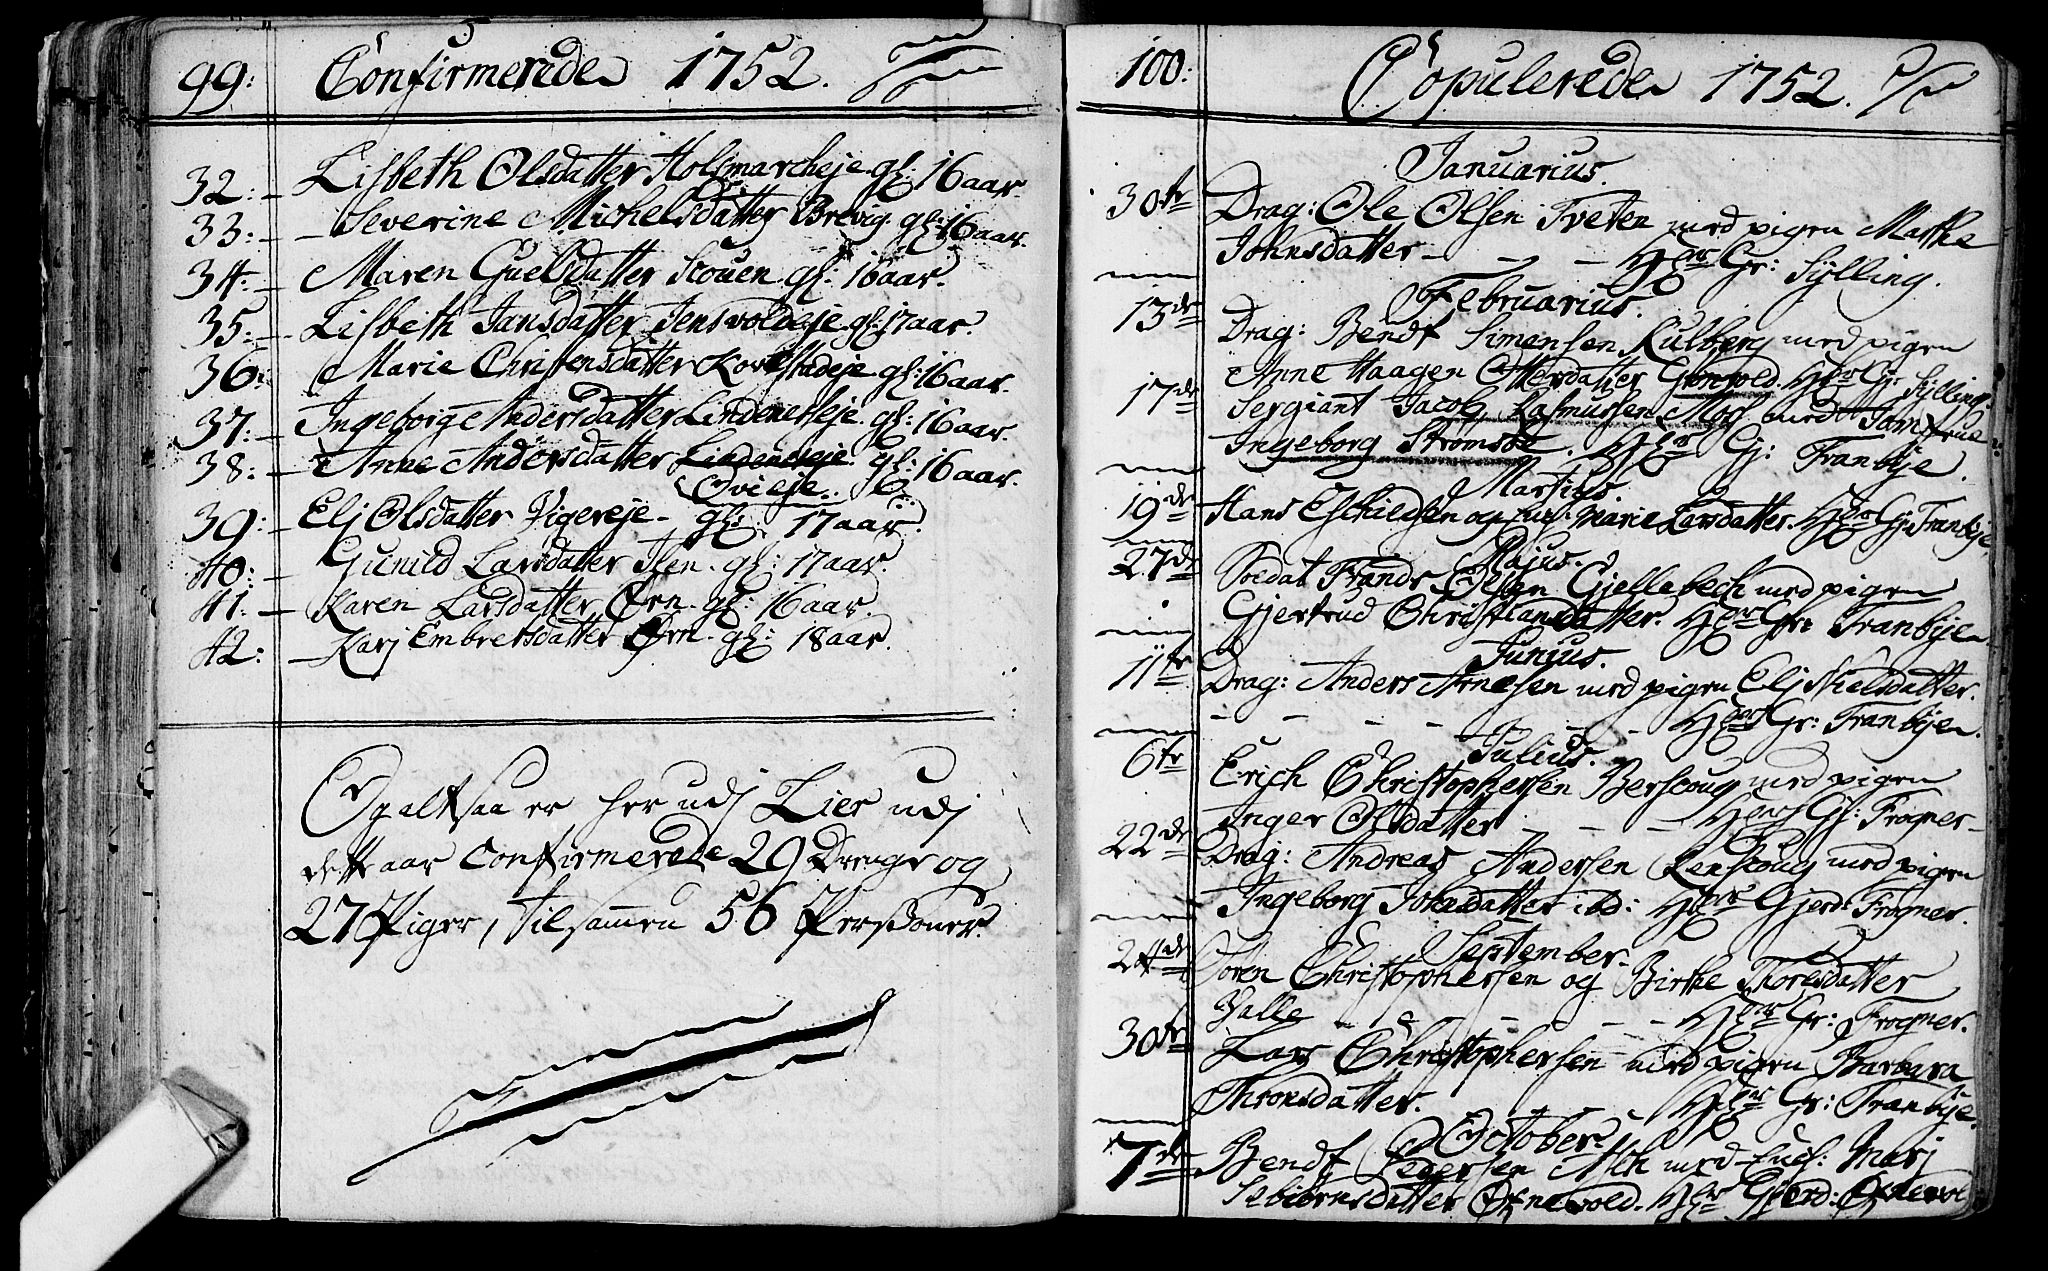 99: Confirmerede 1752.
32: Lisbeth Olsdatter Holsmarcheje gl: 16 aar.
33: Severine Michelsdatter Brevig. gl: 16 aar.
34: Maren Guelsdatter Scouen gl: 16 aar.
35: Lisbeth Jansdatter Jensvoldeje gl: 17 aar.
36: Marie Christensdatter gl: 16 aar.
37: Ingeborg Andersdatter Lindeneseje gl: 16 aar.
38: Anne Andersdatter Lindeneseje gl: 16 aar.
Ovieje.
39: Elj Olsdatter Vigereje gl: 17 aar.
40: Gunild Larsdatter Ilen. gl: 17 aar.
41: Karen Larsdatter Ørn. gl: 16 aar.
42: Karj Embretsdatter Ørn. gl: 18 aar.
Og altsaa er her udj Lier udj
dette aar Confirmerede 29 Drenge og
27 Piger, tilsammen 56 Persohner.
100: Copulerede 1752.
Januarius.
30te Drag: Ole Olsen Tveten med pigen Marthe
Johnsdatter - - - Hger Gr: Sylling.
Februarius.
13de Drag: Bendt Simensen Kulberg med pigen
Anne Haagen Ottersdatter Grønvold. Hger Gr Sylling.
17de Sergiant Jacob Rasmussen Moss med Jomfrue
Ingeborg Stromsøe. Hger Gj: Tranbye.
Martius.
19de Hans Eschildsen og Ench: Marie Larsdatter. Hger Gr Tranbye
Majus.
27de Soldat Frands Olsen Gjellebech med pigen
Gjertrud Christiansdatter. Hger Gr: Tranbyen.
Junius.
11te Drag: Anders Arnesen med pigen Elj Nielsdatter.
- - - - - - Hger Gr: Tranbyen.
Julius.
6te Erich Christophersen Berscoug med pigen
Inger Olsdatter - - - Hger Gj: Frogner-
22de Drag: Andreas Andersen Renscoug med pigen
Ingeborg Johnsdatter ibd: Hger Gjerd: Frogner.
September.
24de Søren Christophersen og Birthe Thoresdatter
Valle - - - - - - Hger Gr: Frogner.
30te Lars Christophersen med pigen Barbara
Thronsdatter. Hger Gr: Tranbye.
October.
7de Bendt Pedersen Asch med Ench: Marj
Sebiørnsdatter Ørnevold. Hger Gjerd: